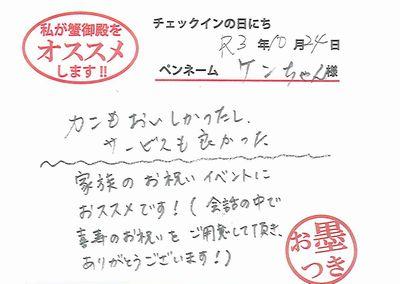 私が蟹御殿を
オススメ
します!!
チェックインの日にち
R3年10月24日
ペンネーム ケンちゃん様
カニもおいしかったし、
サービスも良かった
家族のお祝いイベントに
おススメです!(会話の中で
喜寿のお祝いをご用意して頂き、
ありがとうございます!)
お墨
つき